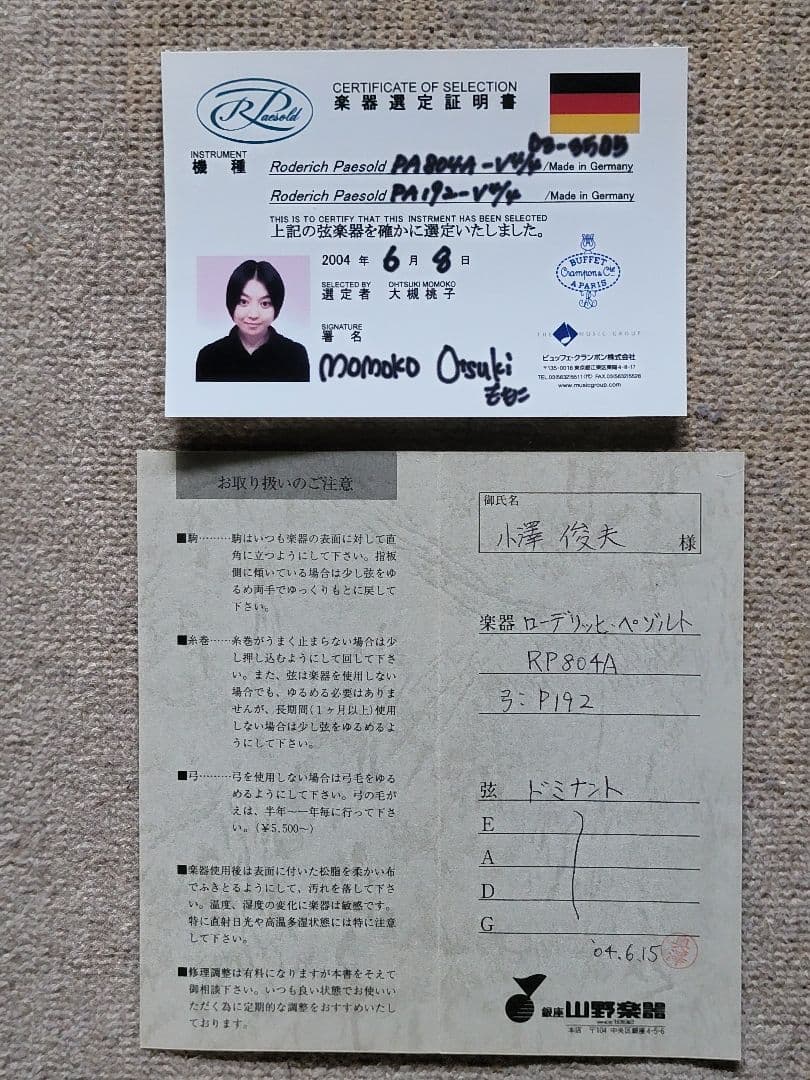 R Paesold
CERTIFICATE OF SELECTION
楽器選定証明書
INSTRUMENT
機種
Roderich Paesold PA804A-V4/4 /Made in Germany
Roderich Paesold PA192-V4/4 /Made in Germany
THIS IS TO CERTIFY THAT THIS INSTRMENT HAS BEEN SELECTED
上記の弦楽器を確かに選定いたしました。
2004 年 6 月 8 日
SELECTED BY OHTSUKI MOMOKO
選定者 大槻桃子
SIGNATURE
署名
Momoko Otsuki
ももこ
BUFFET
Crampon & Cie
A PARIS
THE MUSIC GROUP
ビュッフェ・クランポン株式会社
〒135-0016 東京都江東区東陽4-8-17
TEL.03(5632)5511(代) FAX.03(5632)5526
www.musicgroup.com
お取り扱いのご注意
■駒………駒はいつも楽器の表面に対して直
角に立つようにして下さい。指板
側に傾いている場合は少し弦をゆ
るめ両手でゆっくりもとに戻して
下さい。
■糸巻……糸巻がうまく止まらない場合は少
し押し込むようにして回して下さ
い。また、弦は楽器を使用しない
場合でも、ゆるめる必要はありま
せんが、長期間(1ヶ月以上)使用
しない場合は少し弦をゆるめるよ
うにして下さい。
■弓………弓を使用しない場合は弓毛をゆる
めるようにして下さい。弓の毛が
えは、半年〜一年毎に行って下さ
い。(¥5,500〜)
■楽器使用後は表面に付いた松脂を柔かい布
でふきとるようにして、汚れを落して下さ
い。温度、湿度の変化に楽器は敏感です。
特に直射日光や高温多湿状態には特に注意
して下さい。
■修理調整は有料になりますが本書をそえて
御相談下さい。いつも良い状態でお使いい
ただく為に定期的な調整をおすすめいたし
ております。
御氏名
小澤 俊夫 様
楽器 ローデリッヒ・ペゾルト
RP804A
弓: P192
弦 ドミナント
E
A
D
G
'04.6.15
銀座 山野楽器
本店 〒104 中央区銀座4-5-6